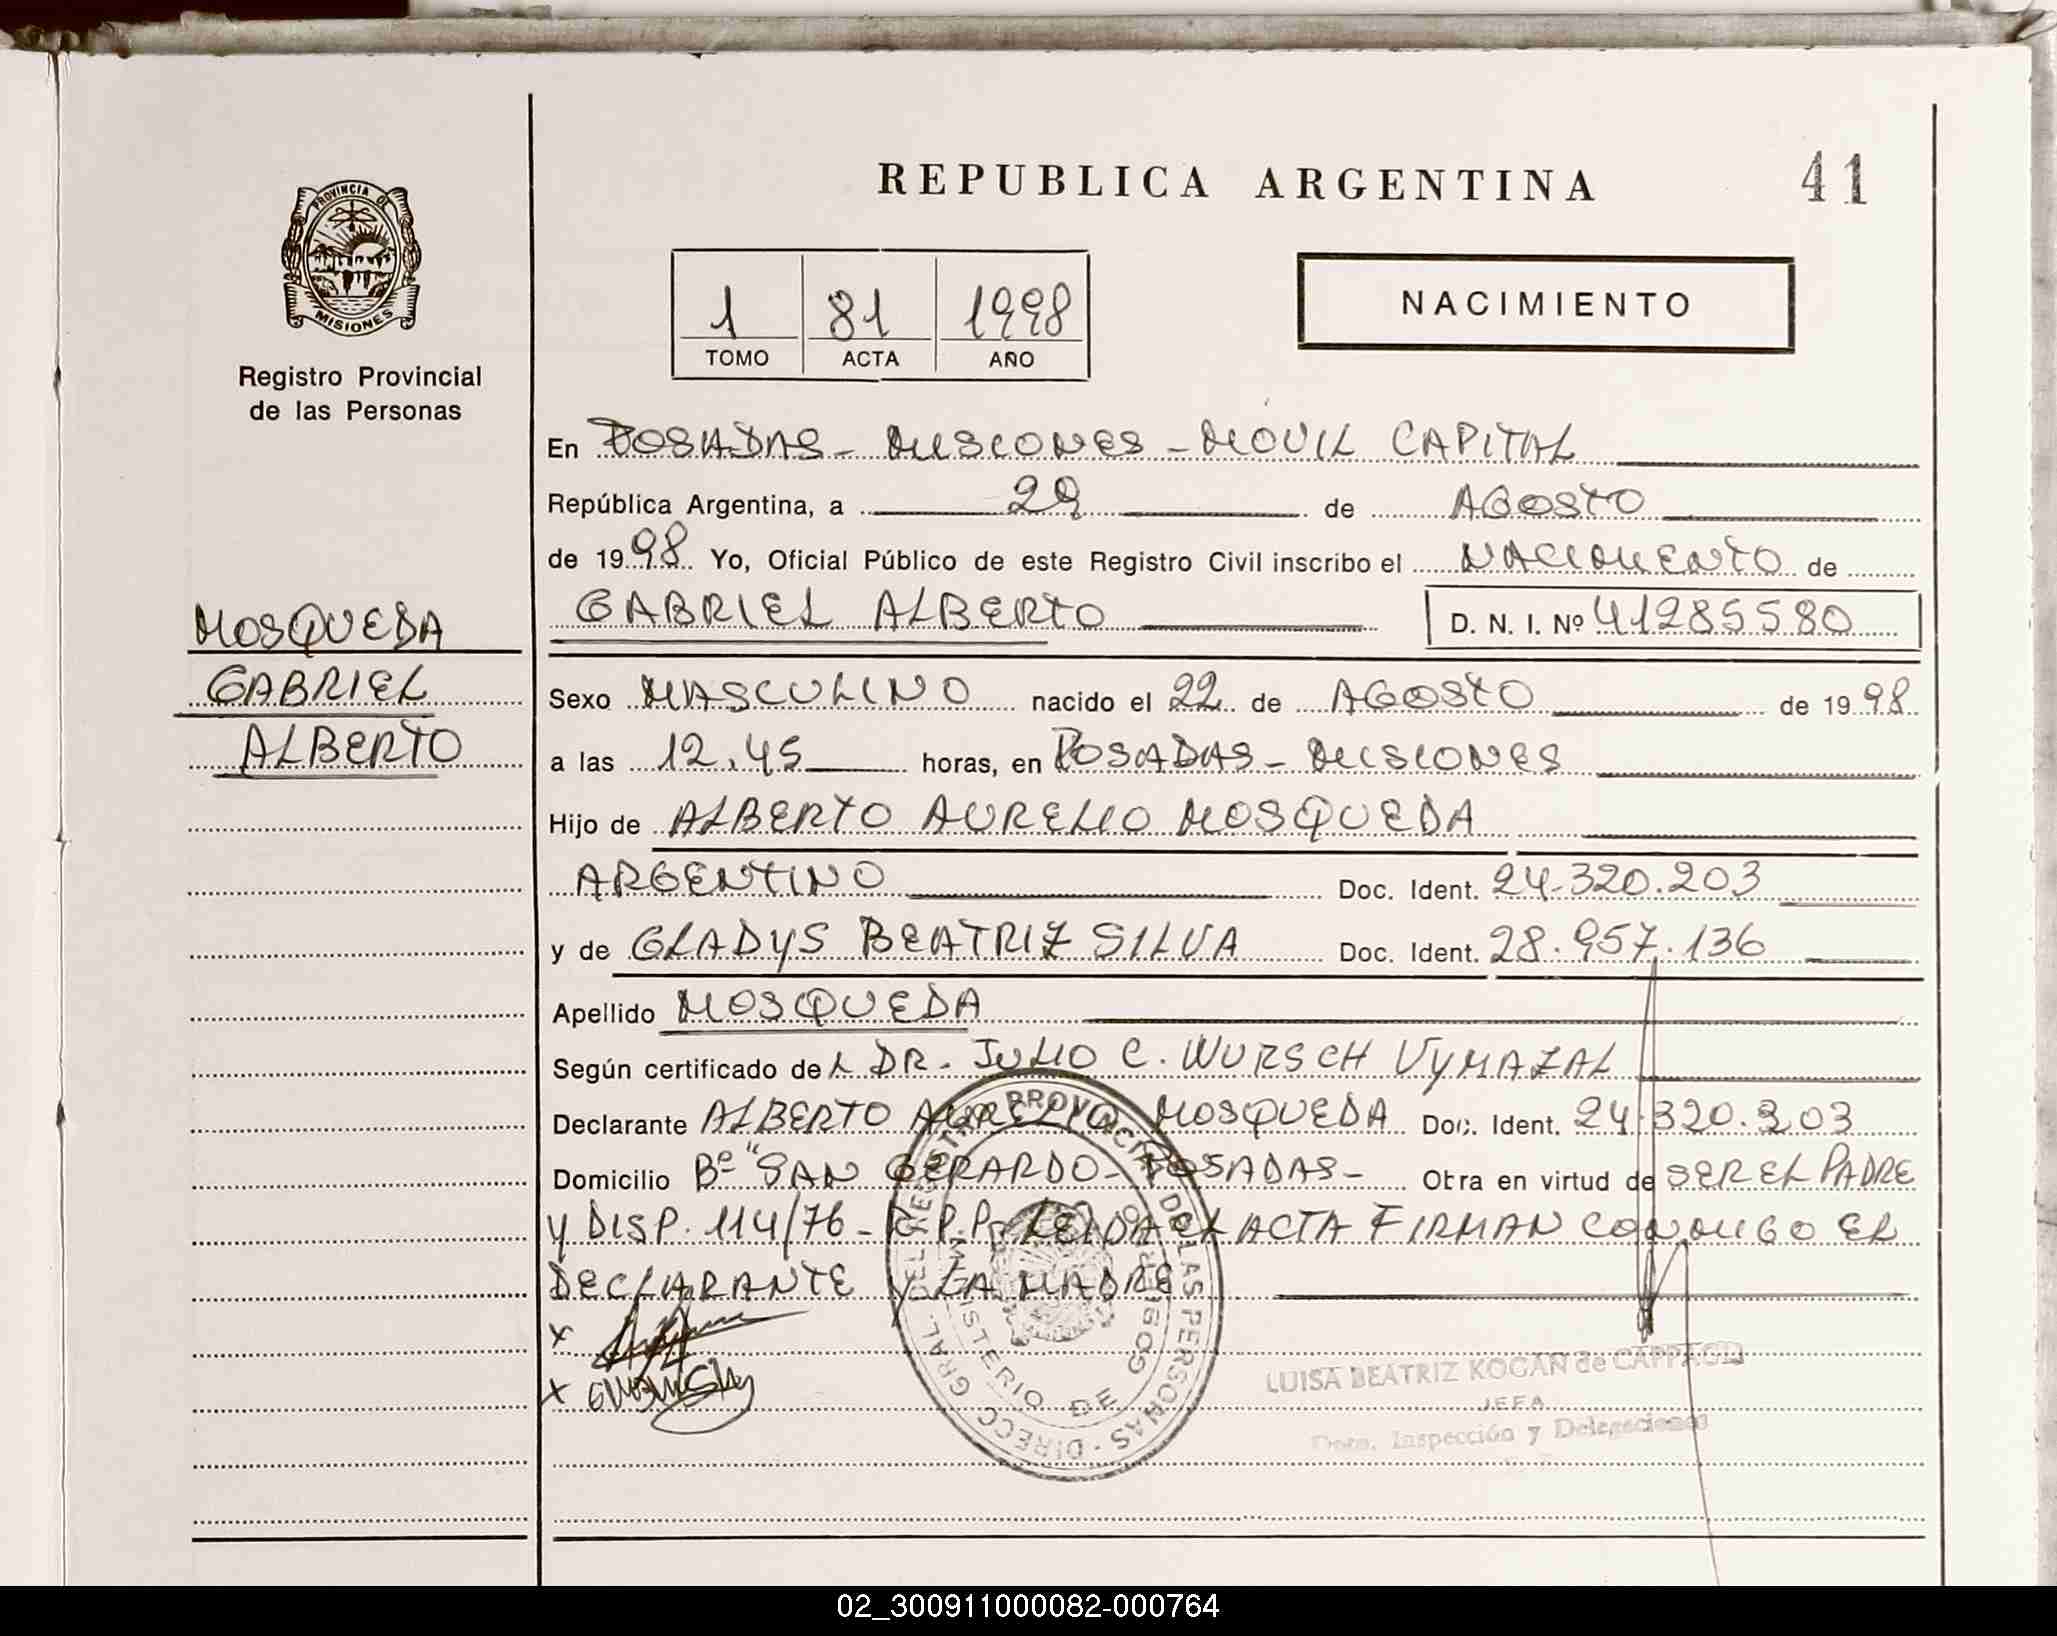 REPUBLICA ARGENTINA
41
PROVINCIA DE
MISIONES
Registro Provincial
de las Personas
1 81 1998
TOMO ACTA AÑO
NACIMIENTO
En POSADAS - MISIONES - MOVIL CAPITAL
República Argentina, a 29 de AGOSTO
de 1998 Yo, Oficial Público de este Registro Civil inscribo el NACIMIENTO de
GABRIEL ALBERTO D. N. I. Nº 41285580
MOSQUEDA
GABRIEL
ALBERTO
Sexo MASCULINO nacido el 22 de AGOSTO de 1998
a las 12,45 horas, en POSADAS - MISIONES
Hijo de ALBERTO AURELIO MOSQUEDA
ARGENTINO Doc. Ident. 24.320.203
y de GLADYS BEATRIZ SILVA Doc. Ident. 28.957.136
Apellido MOSQUEDA
Según certificado del DR. JULIO C. WURSCH VYMAZAL
Declarante ALBERTO AURELIO MOSQUEDA Doc. Ident. 24.320.203
Domicilio Bº "SAN GERARDO - POSADAS - Otra en virtud de SER EL PADRE
Y DISP. 114/76 - R.P.P. LEIDA EL ACTA FIRMAN CONMIGO EL
DECLARANTE Y LA MADRE
X
X
DIRECC. GRAL. DEL REGISTRO PROVINCIAL DE LAS PERSONAS
MINISTERIO DE GOBIERNO
LUISA BEATRIZ KOGAN de
JEFA
Dpto. Inspección y Delegaciones
02_300911000082-000764